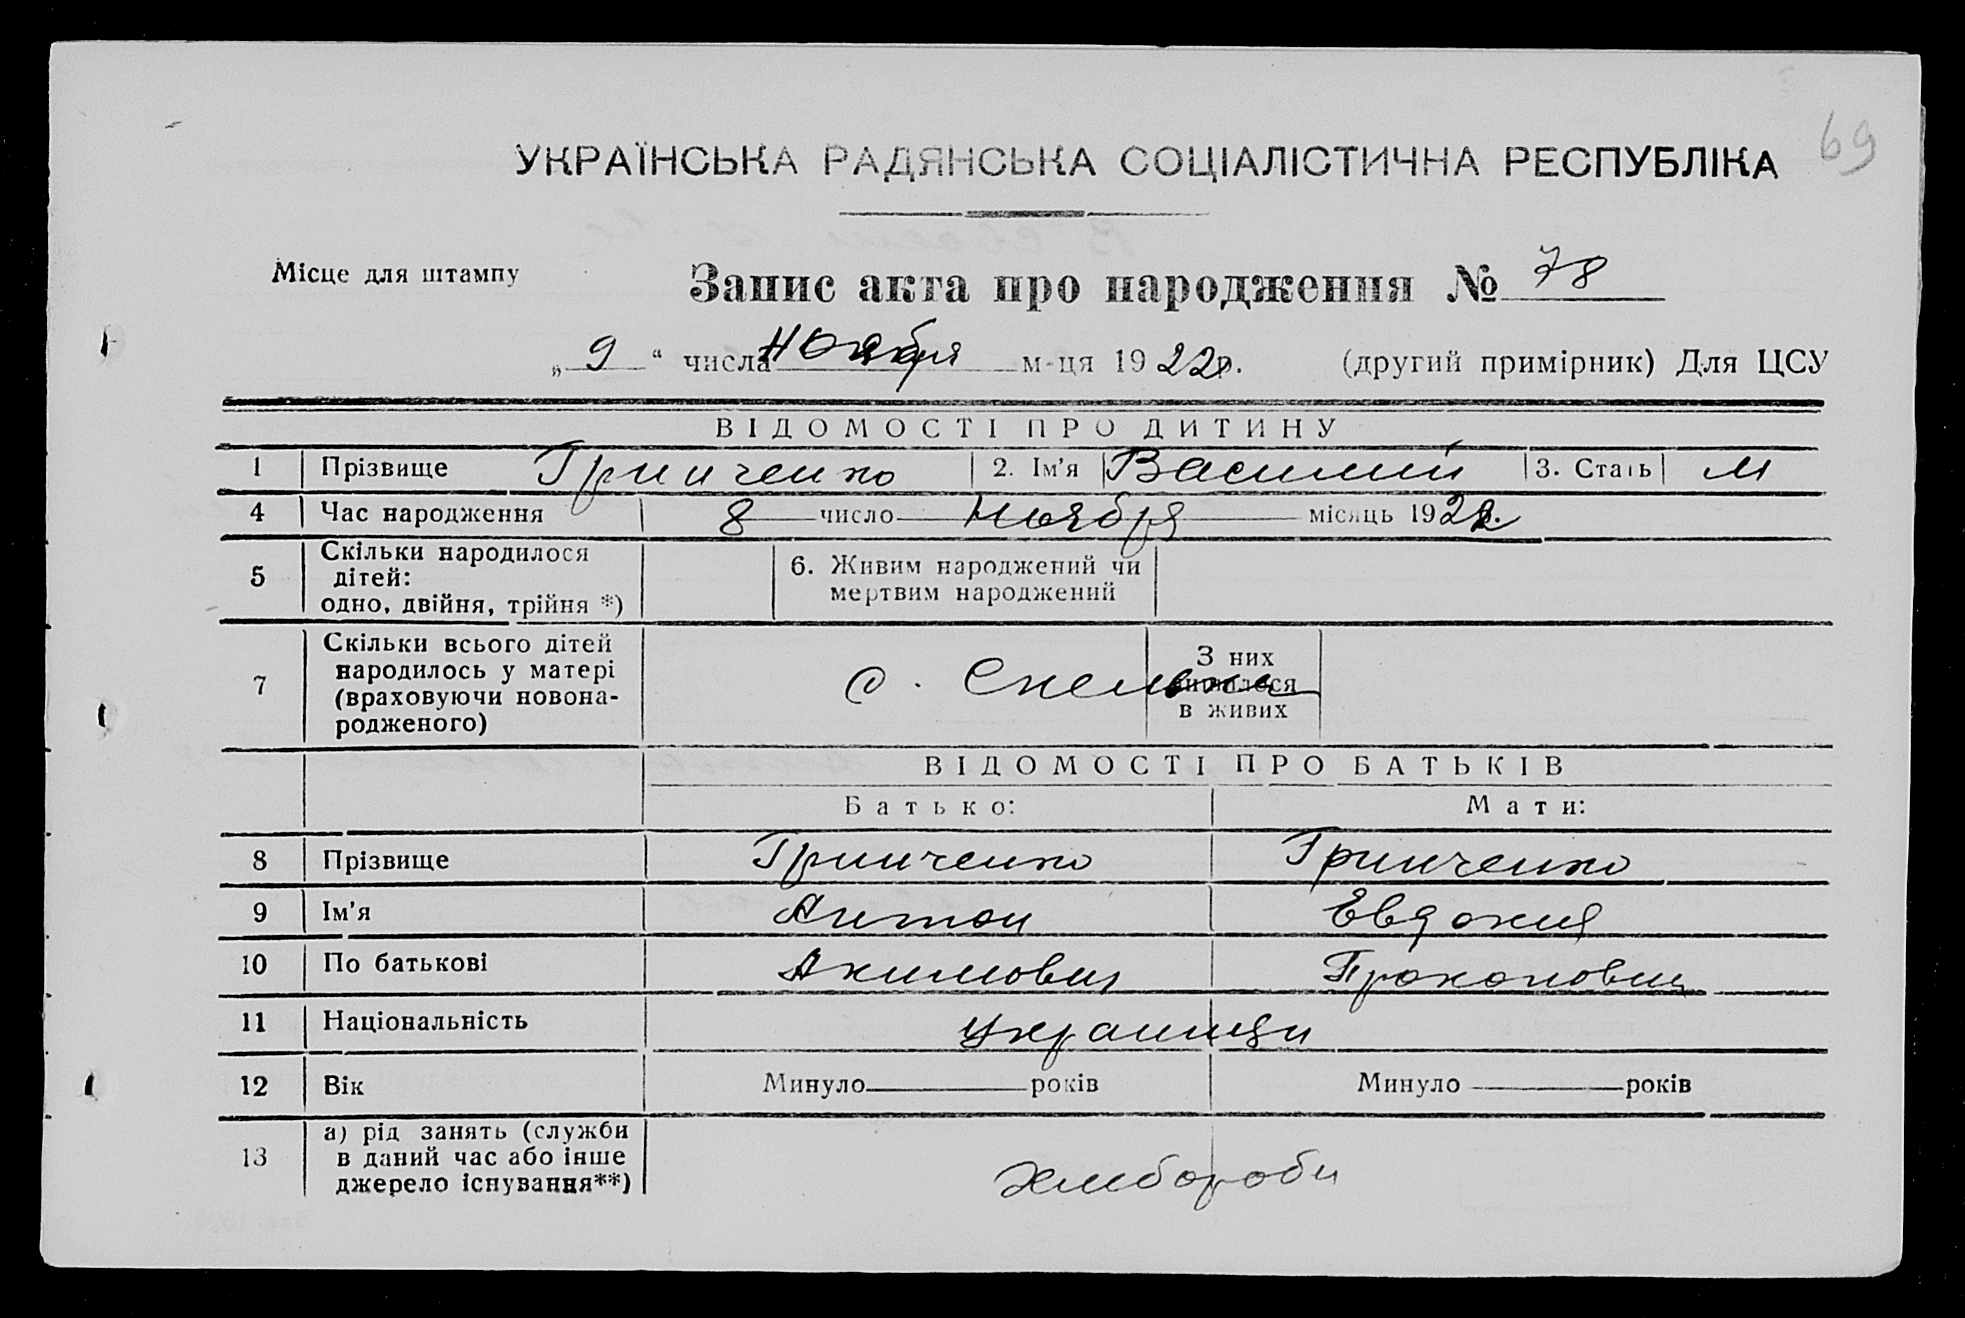 69
УКРАЇНСЬКА РАДЯНСЬКА СОЦІАЛІСТИЧНА РЕСПУБЛІКА
Місце для штампу
Запис акта про народження № 78
„ 9 “ числа Ноября м-ця 1922 р. (другий примірник) Для ЦСУ
ВІДОМОСТІ ПРО ДИТИНУ
1 Прізвище Гринченко 2. Ім'я Василий 3. Стать м
4 Час народження 8 число Ноября місяць 1922 р.
5 Скільки народилося дітей: одно, двійня, трійня *) 6. Живим народжений чи мертвим народжений
7 Скільки всього дітей народилось у матері (враховуючи новонародженого) с. Скельки З них лишилося в живих
ВІДОМОСТІ ПРО БАТЬКІВ
Батько: Мати:
8 Прізвище Гринченко Гринченко
9 Ім'я Антон Евдокия
10 По батькові Акимович Прокоповна
11 Національність украинци
12 Вік Минуло років Минуло років
13 а) рід занять (служби в даний час або інше джерело існування**) Хлибороби